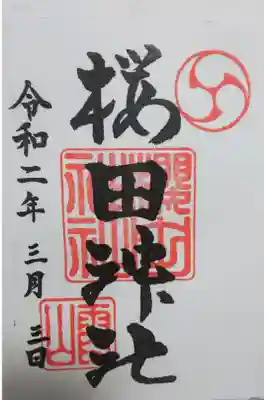 桜田神社
令和二年 三月 三日